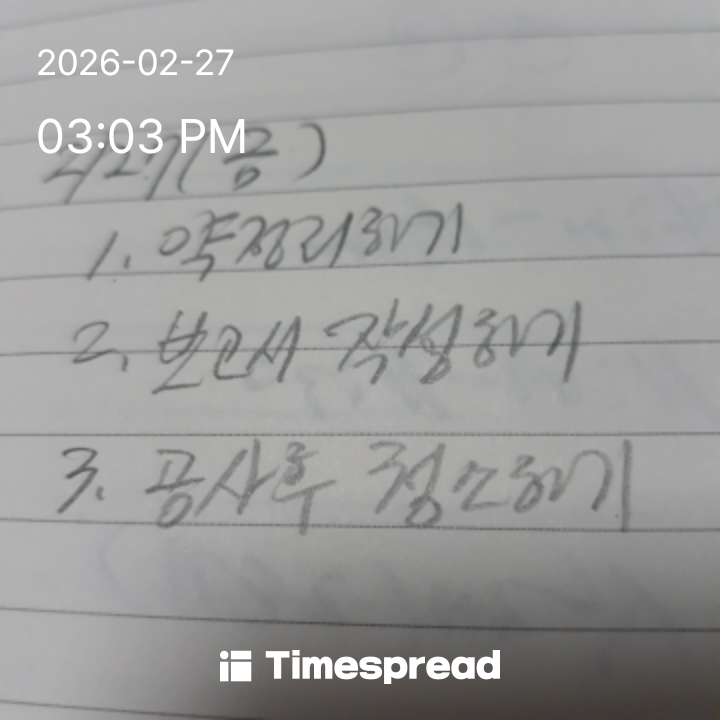 2026-02-27
03:03 PM
2/27(금)
1. 약정리하기
2. 보고서 작성하기
3. 공사후 청소하기
Timespread